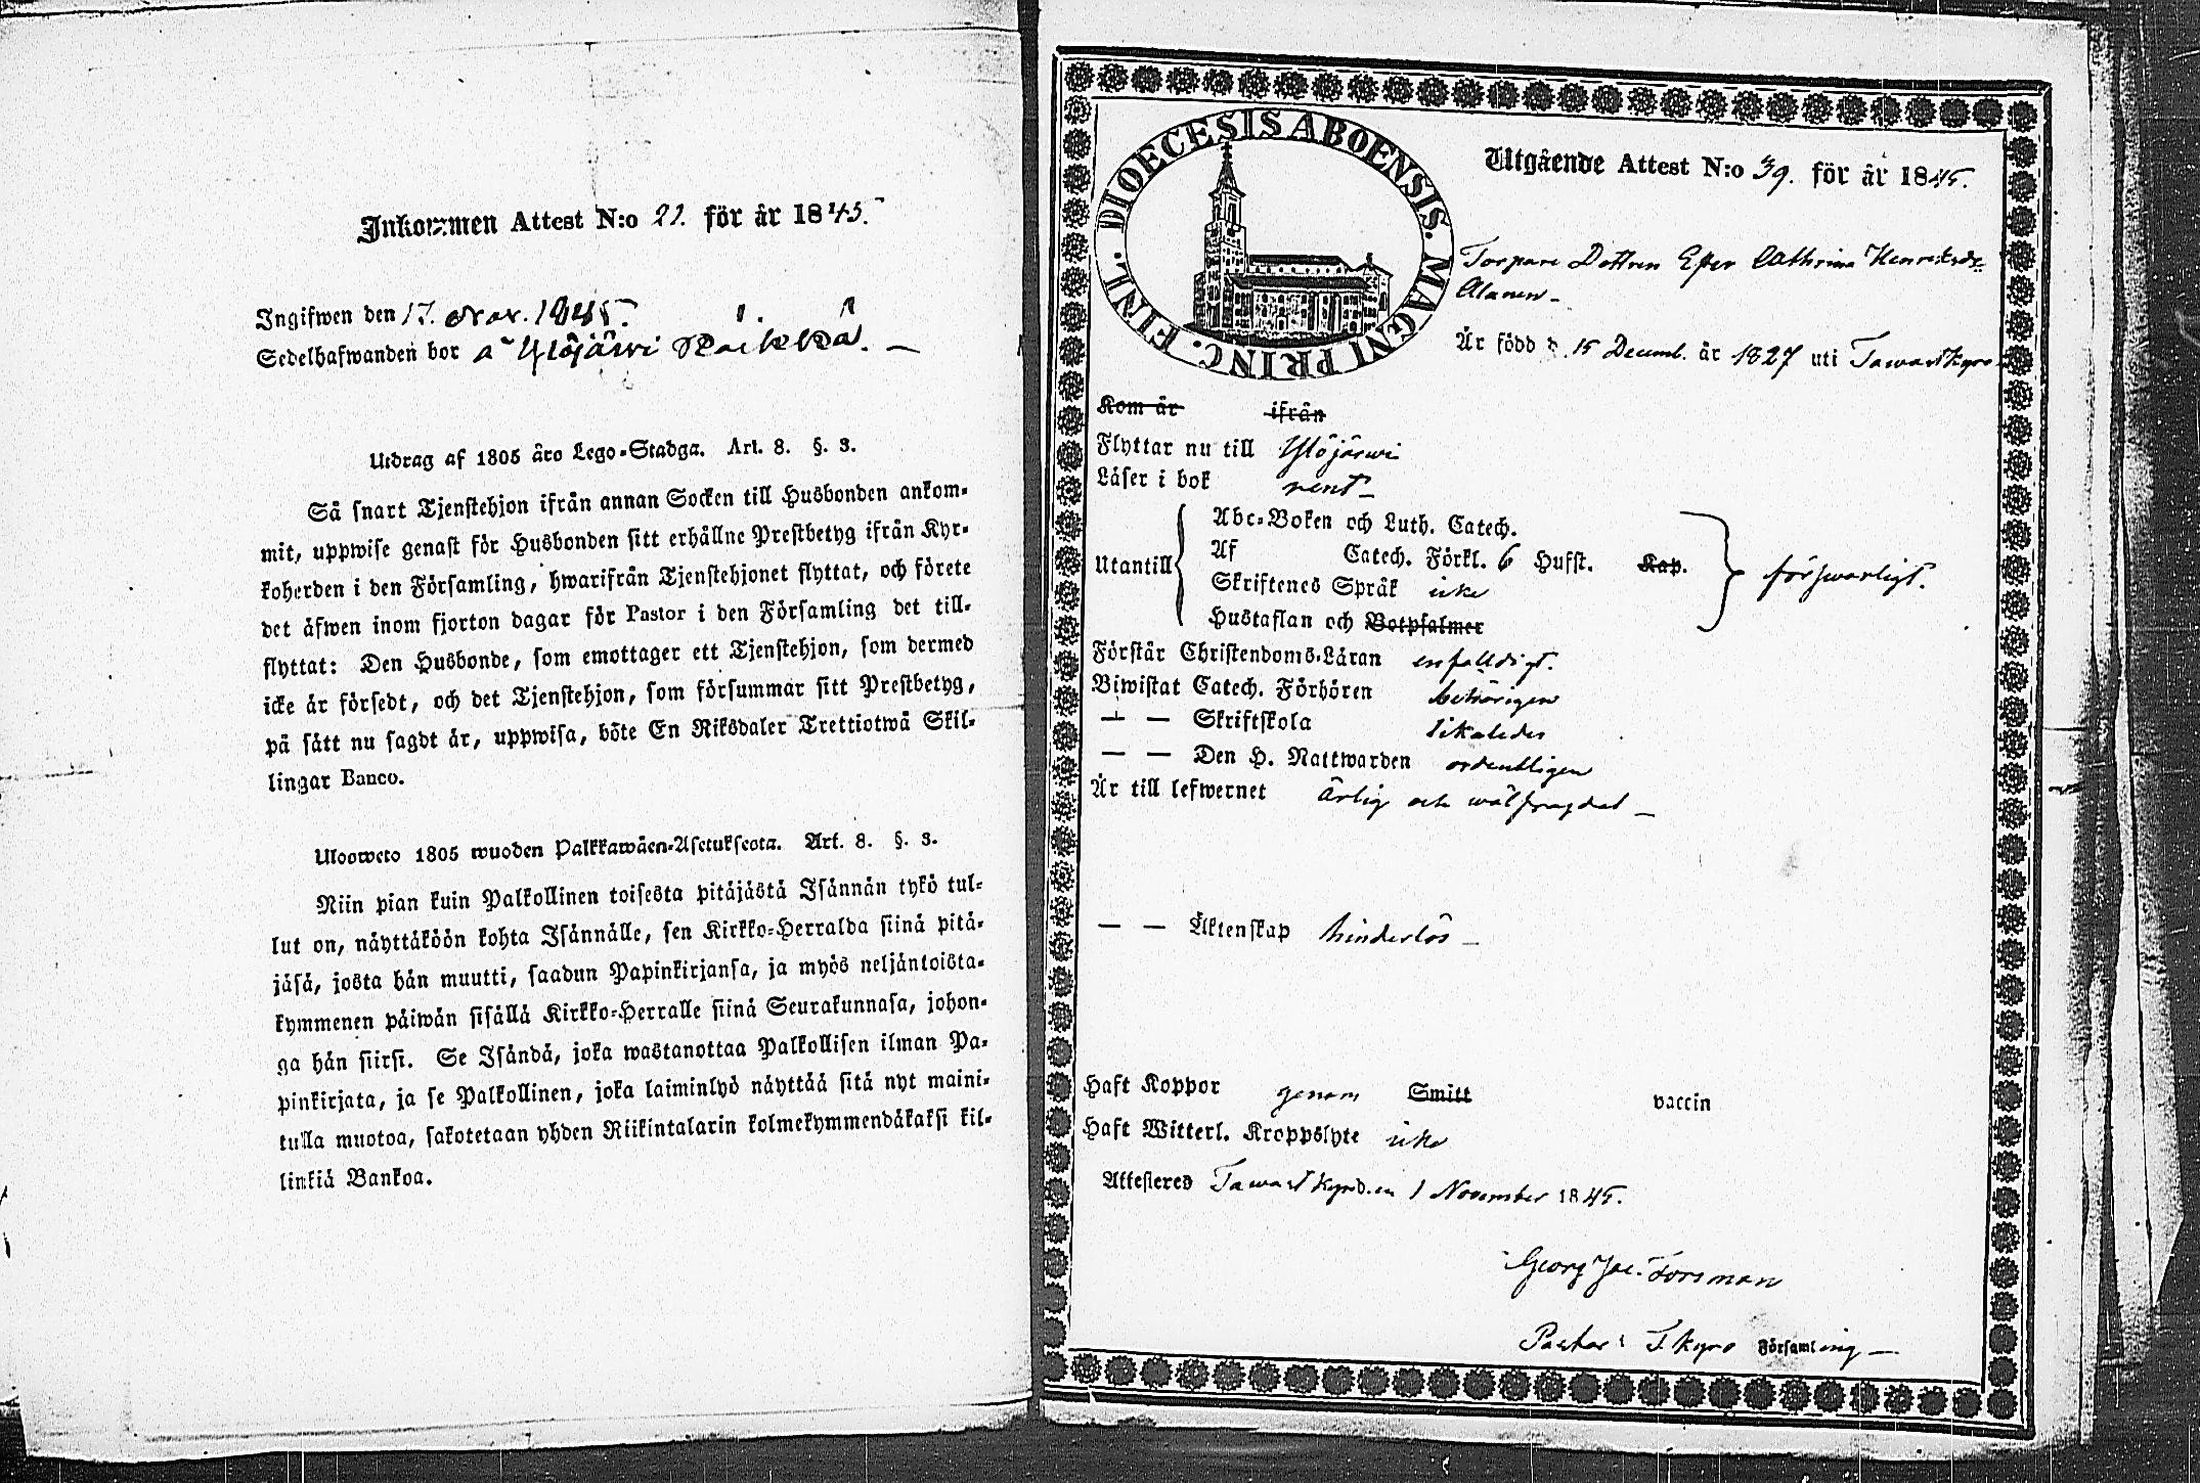 Inkommen Attest N:o 22. för år 1845.
Ingifwen den 17. Nov. 1845.
Sedelhafwanden bor å Ylöjärwi Räikkä. —
Utdrag af 1805 åro Lego-Stadga. Art. 8. §. 3.
Så snart Tjenstehjon ifrån annan Socken till Husbonden ankom-
mit, uppwise genast för Husbonden sitt erhållne Prestbetyg ifrån Kyr-
koherden i den Församling, hwarifrån Tjenstehjonet flyttat, och förete
det äfwen inom fjorton dagar för Pastor i den Församling det till-
flyttat: Den Husbonde, som emottager ett Tjenstehjon, som dermed
icke är försedt, och det Tjenstehjon, som försummar sitt Prestbetyg,
på sätt nu sagdt är, uppwisa, böte En Riksdaler Trettiotwå Skil-
lingar Banco.
Ulooweto 1805 wuoden Palkkawäen-Asetukseota. Art. 8. §. 3.
Niin pian kuin Palkollinen toisesta pitäjästä Isännän tykö tul-
lut on, näyttäköön kohta Isännälle, sen Kirkko-Herralda siinä pitä-
jäsä, josta hän muutti, saadun Papinkirjansa, ja myös neljäntoista-
kymmenen päiwän sisällä Kirkko-Herralle siinä Seurakunnasa, johon-
ga hän siirsi. Se Isändä, joka wastanottaa Palkollisen ilman Pa-
pinkirjata, ja se Palkollinen, joka laiminlyö näyttää sitä nyt maini-
tulla muotoa, sakotetaan yhden Riikintalarin kolmekymmendäkaksi kil-
linkiä Bankoa.
DIOECESIS ABOENSIS. MAGNI PRINC. FINL.
Utgående Attest N:o 39. för år 1845.
Torpare Dottren Efter Cathrina Henriksdr
Alanen —
Är född d. 15 Decemb. år 1827 uti Tawastkyro
Kom år ifrån
Flyttar nu till Ylöjärwi
Läser i bok rent —
Utantill
Abc-Boken och Luth. Catech.
Af Catech. Förkl. 6 Hufst. Kap.
Skriftenes Språk icke
Hustaflan och Botpsalmer
försvarligt.
Förstår Christendoms-Läran enfalldigt.
Biwistat Catech. Förhören behörigen
— — Skriftskola likaledes
— — Den H. Nattwarden ordentligen
Är till lefwernet ärlig och wälfrägdad —
— — Äktenskap hinderlös —
Haft Koppor genom Smitt vaccin
Haft Witterl. Kroppslyte icke
Attesteres Tawastkyro d. 1 November 1845.
Georg Jac. Forsman
Pastor i T.kyro Församling —